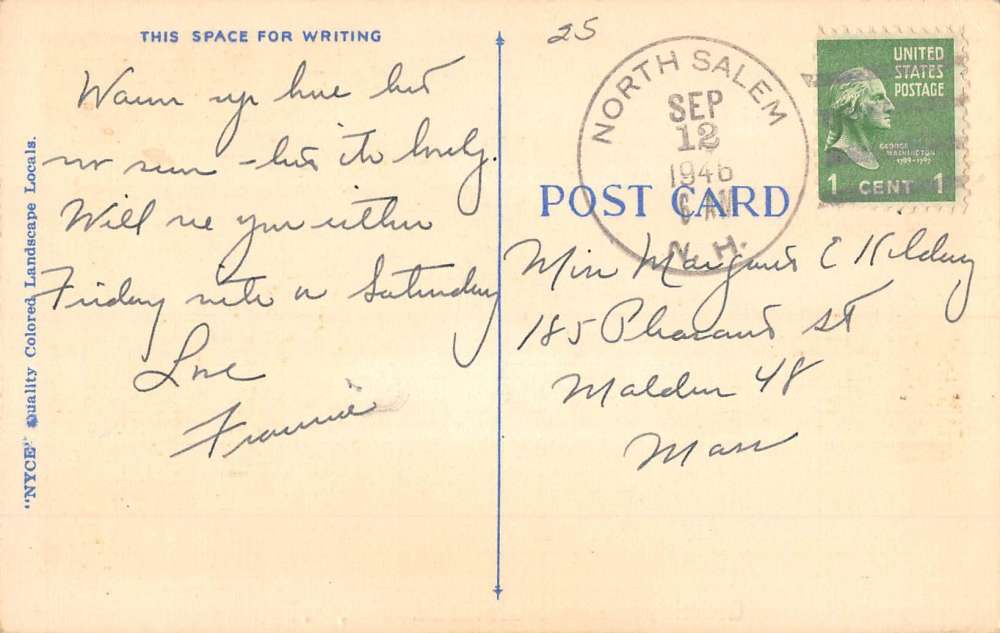 THIS SPACE FOR WRITING
Warm up here but
no sun - but its lovely.
Will see you either
Friday nite or Saturday
Love
Frannie
"NYCE" Quality Colored Landscape Locals.
25
NORTH SALEM
SEP
12
1946
6 AM
N. H.
UNITED
STATES
POSTAGE
GEORGE
WASHINGTON
1789-1797
1 CENT 1
POST CARD
Miss Margaret E
185 Pleasant St
Malden 48
Mass